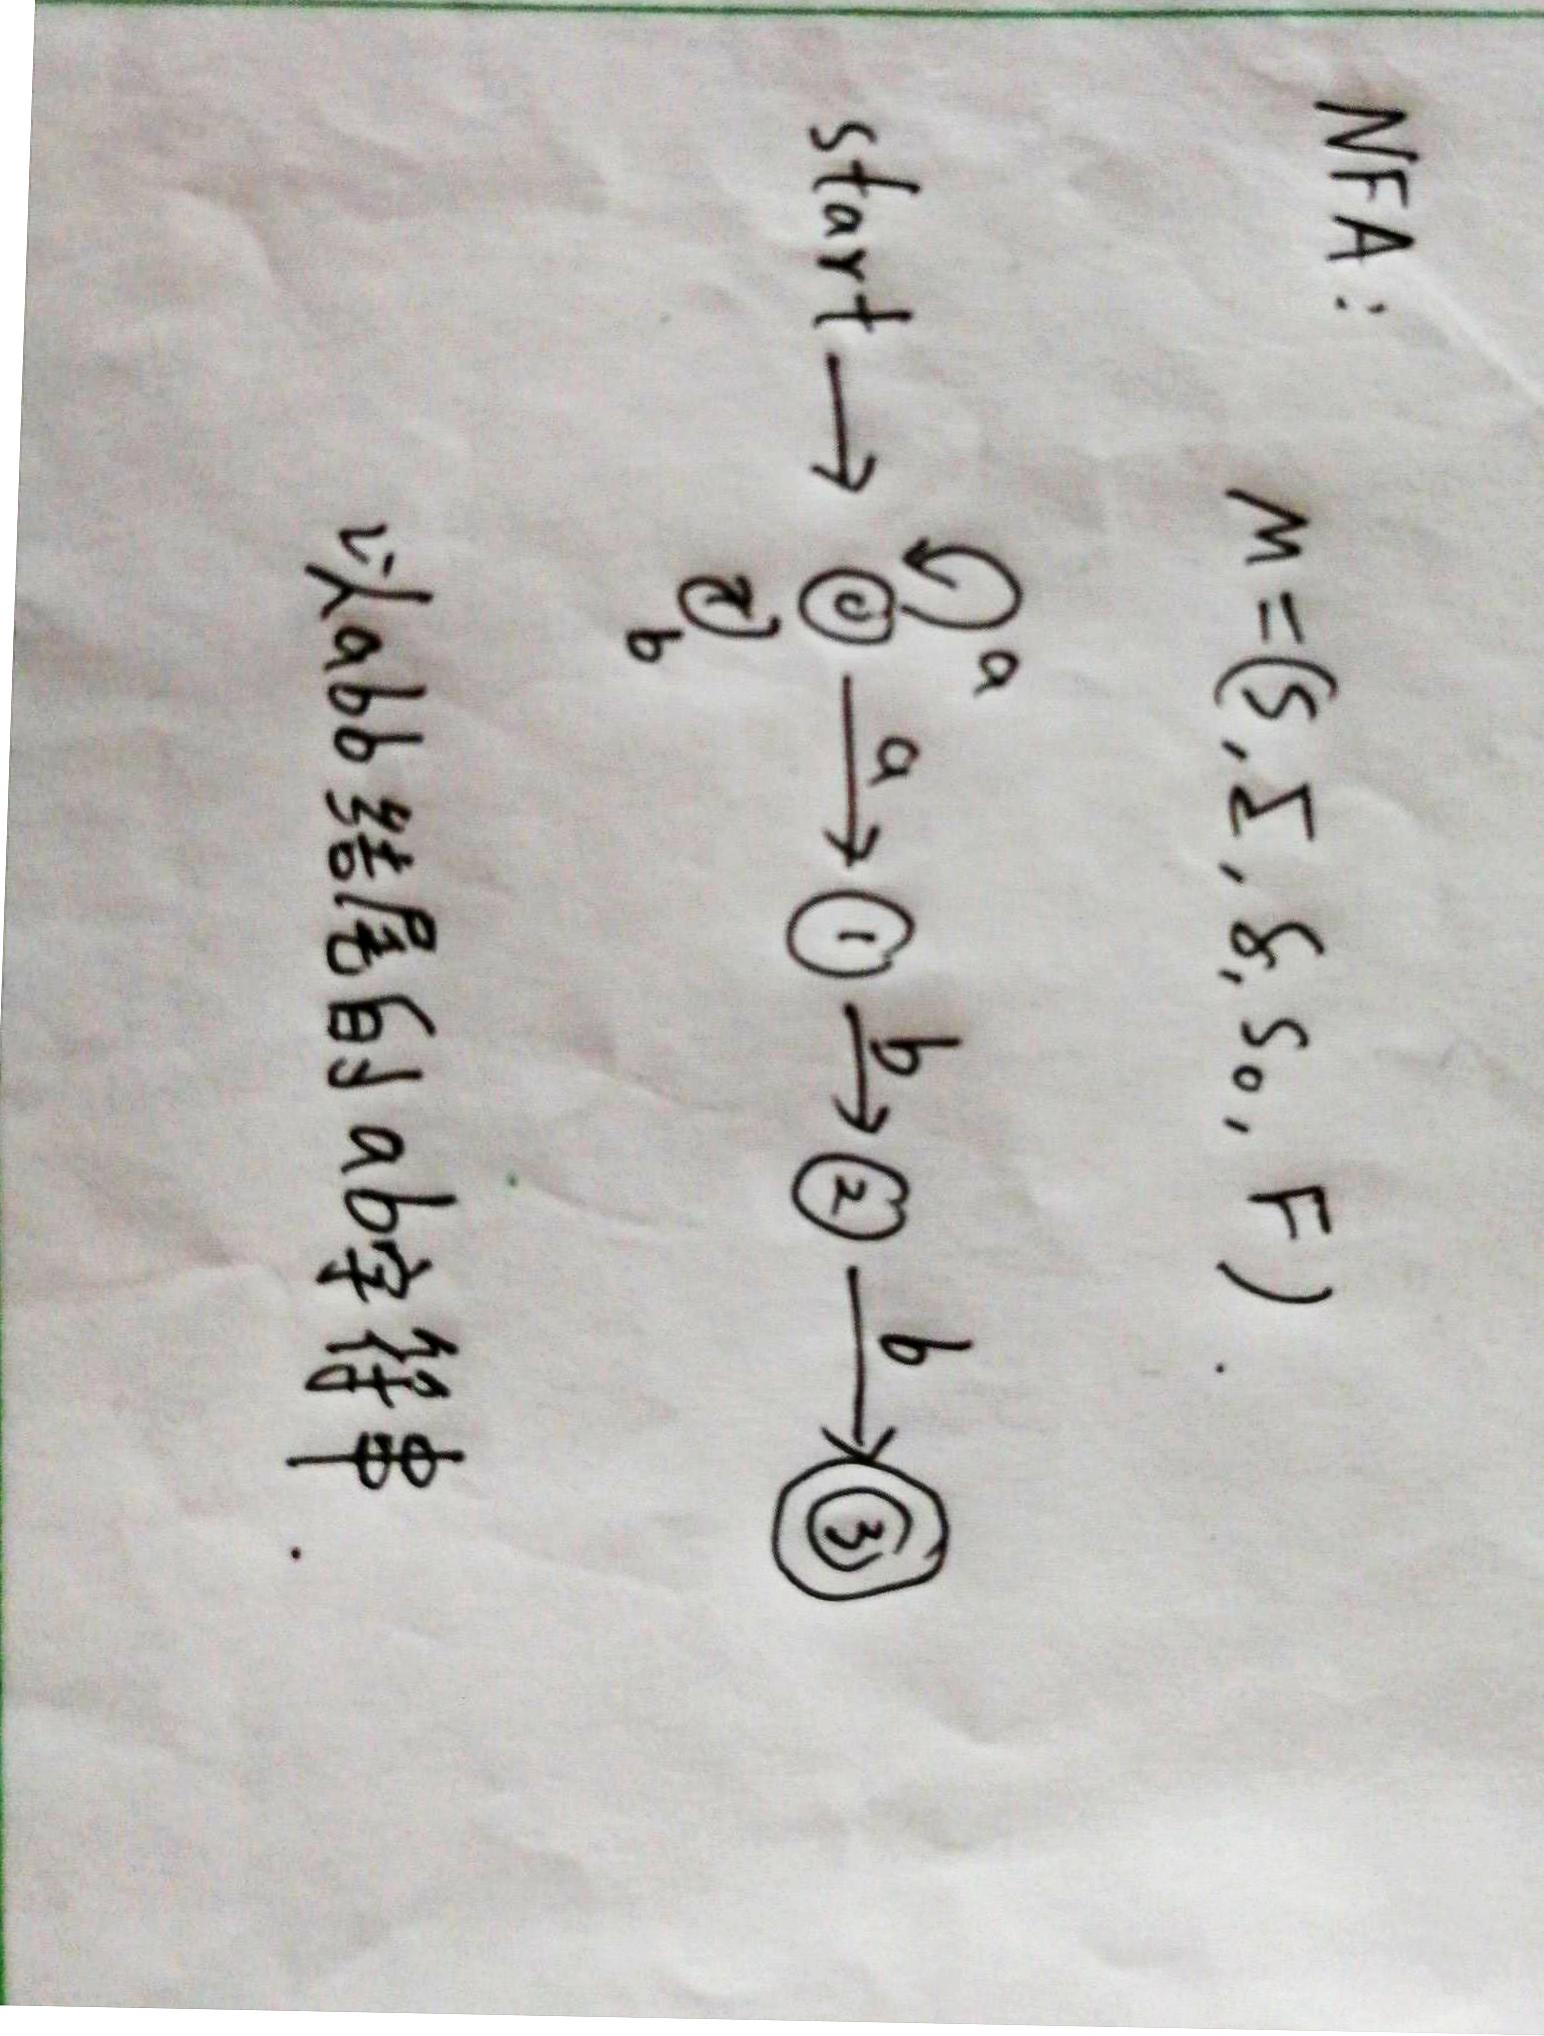 NFA:
M=(S,Σ,δ,S0,F).
a
start → 0 a → 1 b → 2 b → 3
b
以abb结尾的ab字符串.